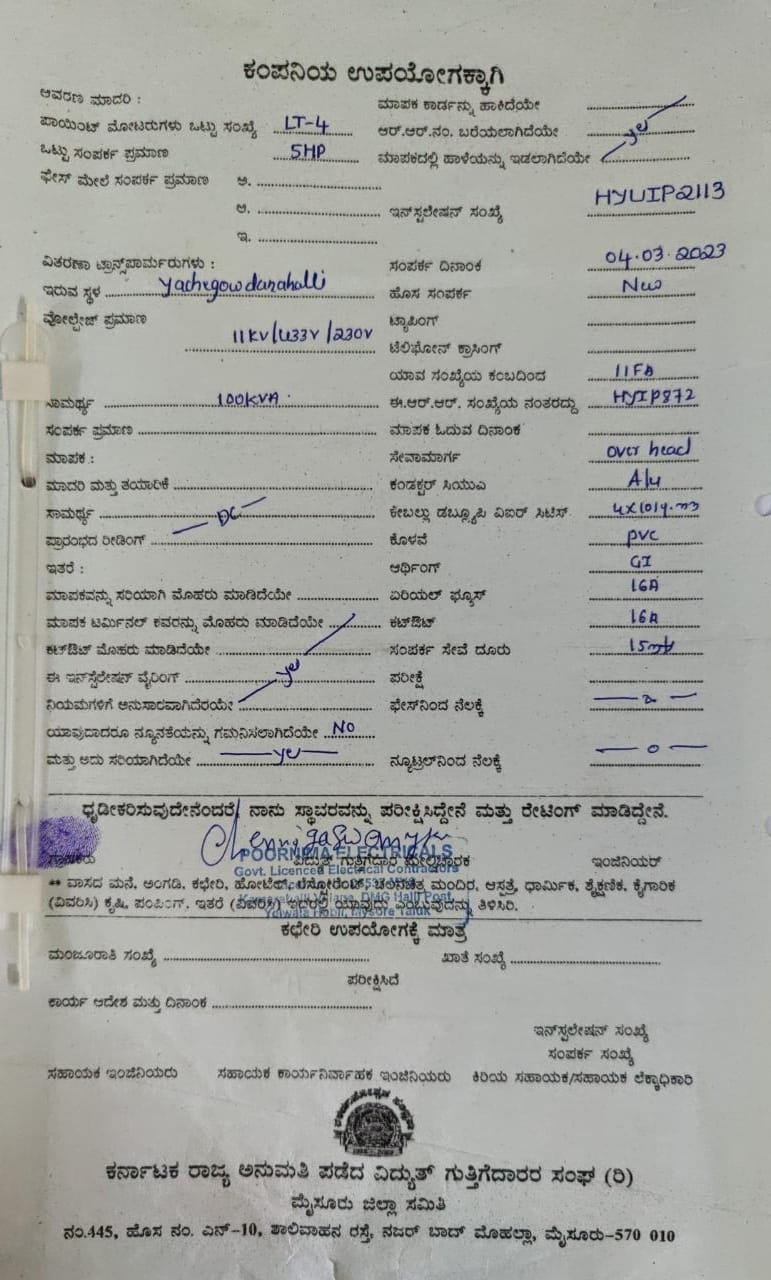 ಕಂಪನಿಯ ಉಪಯೋಗಕ್ಕಾಗಿ
ಆವರಣ ಮಾದರಿ : ಮಾಪಕ ಕಾರ್ಡನ್ನು ಹಾಕಿದೆಯೇ
ಪಾಯಿಂಟ್ ಮೋಟರುಗಳು ಒಟ್ಟು ಸಂಖ್ಯೆ LT-4 ಆರ್.ಆರ್.ನಂ. ಬರೆಯಲಾಗಿದೆಯೇ yes
ಒಟ್ಟು ಸಂಪರ್ಕ ಪ್ರಮಾಣ 5HP ಮಾಪಕದಲ್ಲಿ ಹಾಳೆಯನ್ನು ಇಡಲಾಗಿದೆಯೇ
ಫೇಸ್ ಮೇಲೆ ಸಂಪರ್ಕ ಪ್ರಮಾಣ ಅ.
ಆ. ಇನ್‌ಸ್ಟಲೇಷನ್ ಸಂಖ್ಯೆ HYUIP2113
ಇ.
ವಿತರಣಾ ಟ್ರಾನ್ಸ್‌ಪಾರ್ಮರುಗಳು : ಸಂಪರ್ಕ ದಿನಾಂಕ 04.03.2023
ಇರುವ ಸ್ಥಳ Yachegowdanahalli ಹೊಸ ಸಂಪರ್ಕ New
ವೋಲ್ಟೇಜ್ ಪ್ರಮಾಣ 11KV/433V/230V ಟ್ಯಾಪಿಂಗ್
ಟೆಲಿಫೋನ್ ಕ್ರಾಸಿಂಗ್
ಯಾವ ಸಂಖ್ಯೆಯ ಕಂಬದಿಂದ 11FA
ಸಾಮರ್ಥ್ಯ 100KVA. ಈ.ಆರ್.ಆರ್. ಸಂಖ್ಯೆಯ ನಂತರದ್ದು HYIP872
ಸಂಪರ್ಕ ಪ್ರಮಾಣ ಮಾಪಕ ಓದುವ ದಿನಾಂಕ
ಮಾಪಕ : ಸೇವಾಮಾರ್ಗ over head
ಮಾದರಿ ಮತ್ತು ತಯಾರಿಕೆ ಕಂಡಕ್ಟರ್ ಸಿಯುಎ Alu
ಸಾಮರ್ಥ್ಯ DC ಕೇಬಲ್ಲು ಡಬ್ಲ್ಯೂಪಿ ವಿಐರ್ ಸಿಟಿಸ್.
ಪ್ರಾರಂಭದ ರೀಡಿಂಗ್ ಕೊಳವೆ PVC
ಇತರೆ : ಆರ್ಥಿಂಗ್ GI
ಮಾಪಕವನ್ನು ಸರಿಯಾಗಿ ಮೊಹರು ಮಾಡಿದೆಯೇ ಏರಿಯಲ್ ಫ್ಯೂಸ್ 16A
ಮಾಪಕ ಟರ್ಮಿನಲ್ ಕವರನ್ನು ಮೊಹರು ಮಾಡಿದೆಯೇ ಕಟ್‌ಔಟ್ 16A
ಕಟ್‌ಔಟ್ ಮೊಹರು ಮಾಡಿದೆಯೇ ಸಂಪರ್ಕ ಸೇವೆ ದೂರು 15mt
ಈ ಇನ್‌ಸ್ಟಲೇಷನ್ ವೈರಿಂಗ್ yes ಪರೀಕ್ಷೆ
ನಿಯಮಗಳಿಗೆ ಅನುಸಾರವಾಗಿದೆರಯೇ ಫೇಸ್‌ನಿಂದ ನೆಲಕ್ಕೆ
ಯಾವುದಾದರೂ ನ್ಯೂನಕೆಯನ್ನು ಗಮನಿಸಲಾಗಿದೆಯೇ NO
ಮತ್ತು ಅದು ಸರಿಯಾಗಿದೆಯೇ yes ನ್ಯೂಟ್ರಲ್‌ನಿಂದ ನೆಲಕ್ಕೆ — 0 —
ಧೃಢೀಕರಿಸುವುದೇನೆಂದರೆ, ನಾನು ಸ್ಥಾವರವನ್ನು ಪರೀಕ್ಷಿಸಿದ್ದೇನೆ ಮತ್ತು ರೇಟಿಂಗ್ ಮಾಡಿದ್ದೇನೆ.
POORNIMA ELECTRICALS
ಗ್ರಾಹಕರು ವಿದ್ಯುತ್ ಗುತ್ತಿಗೆದಾರ ಮೇಲಿಚಾರಕ ಇಂಜಿನಿಯರ್
Govt. Licenced Electrical Contractors
** ವಾಸದ ಮನೆ, ಅಂಗಡಿ, ಕಛೇರಿ, ಹೋಟೆಲ್, ರೆಸ್ಟೋರೆಂಟ್, ಚಲನಚಿತ್ರ ಮಂದಿರ, ಆಸ್ಪತ್ರೆ, ಧಾರ್ಮಿಕ, ಶೈಕ್ಷಣಿಕ, ಕೈಗಾರಿಕ
DMG Halli Post,
(ವಿವರಿಸಿ) ಕೃಷಿ, ಪಂಪಿಂಗ್, ಇತರೆ (ವಿವರಿಸಿ) ಇದರಲ್ಲಿ ಯಾವುದು ಎಂಬುವುದನ್ನು ತಿಳಿಸಿರಿ.
Hobli, Mysore Taluk
ಕಛೇರಿ ಉಪಯೋಗಕ್ಕೆ ಮಾತ್ರ
ಮಂಜೂರಾತಿ ಸಂಖ್ಯೆ ಖಾತೆ ಸಂಖ್ಯೆ
ಪರೀಕ್ಷಿಸಿದೆ
ಕಾರ್ಯ ಆದೇಶ ಮತ್ತು ದಿನಾಂಕ
ಇನ್‌ಸ್ಟಲೇಷನ್ ಸಂಖ್ಯೆ
ಸಂಪರ್ಕ ಸಂಖ್ಯೆ
ಸಹಾಯಕ ಇಂಜಿನಿಯರು ಸಹಾಯಕ ಕಾರ್ಯನಿರ್ವಾಹಕ ಇಂಜಿನಿಯರು ಕಿರಿಯ ಸಹಾಯಕ/ಸಹಾಯಕ ಲೆಕ್ಕಾಧಿಕಾರಿ
ಕರ್ನಾಟಕ ರಾಜ್ಯ ಅನುಮತಿ ಪಡೆದ ವಿದ್ಯುತ್ ಗುತ್ತಿಗೆದಾರರ ಸಂಘ (ರಿ)
ಮೈಸೂರು ಜಿಲ್ಲಾ ಸಮಿತಿ
ನಂ.445, ಹೊಸ ನಂ. ಎನ್-10, ಶಾಲಿವಾಹನ ರಸ್ತೆ, ನಜರ್ ಬಾದ್ ಮೊಹಲ್ಲಾ, ಮೈಸೂರು-570 010